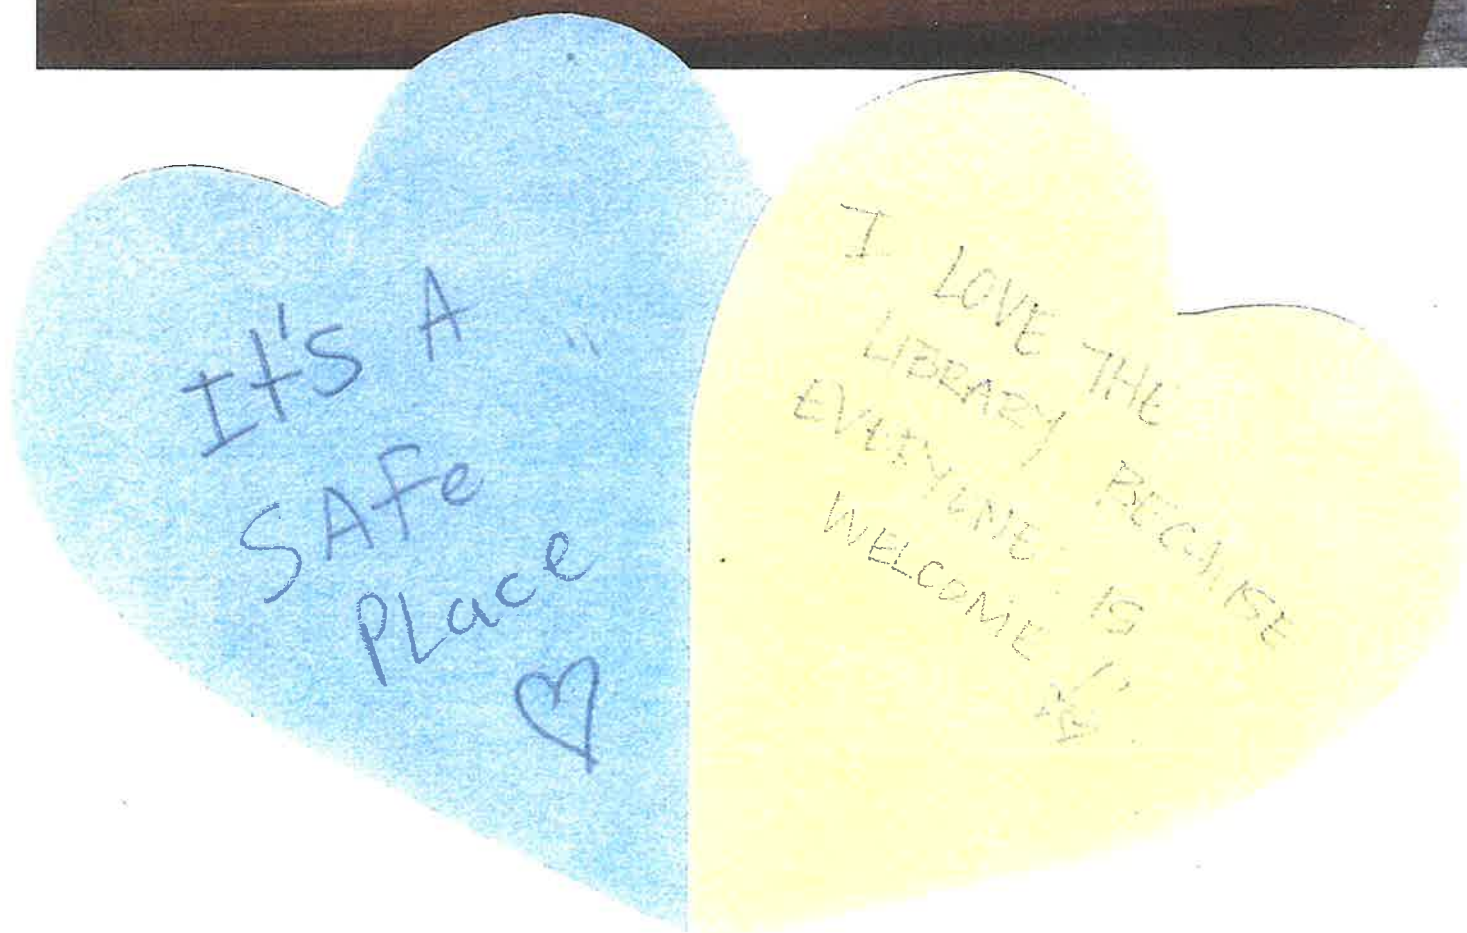 It's A
SAFe
PLace
♡
I LOVE THE
LIBRARY BECAUSE
EVERYONE IS
WELCOME !